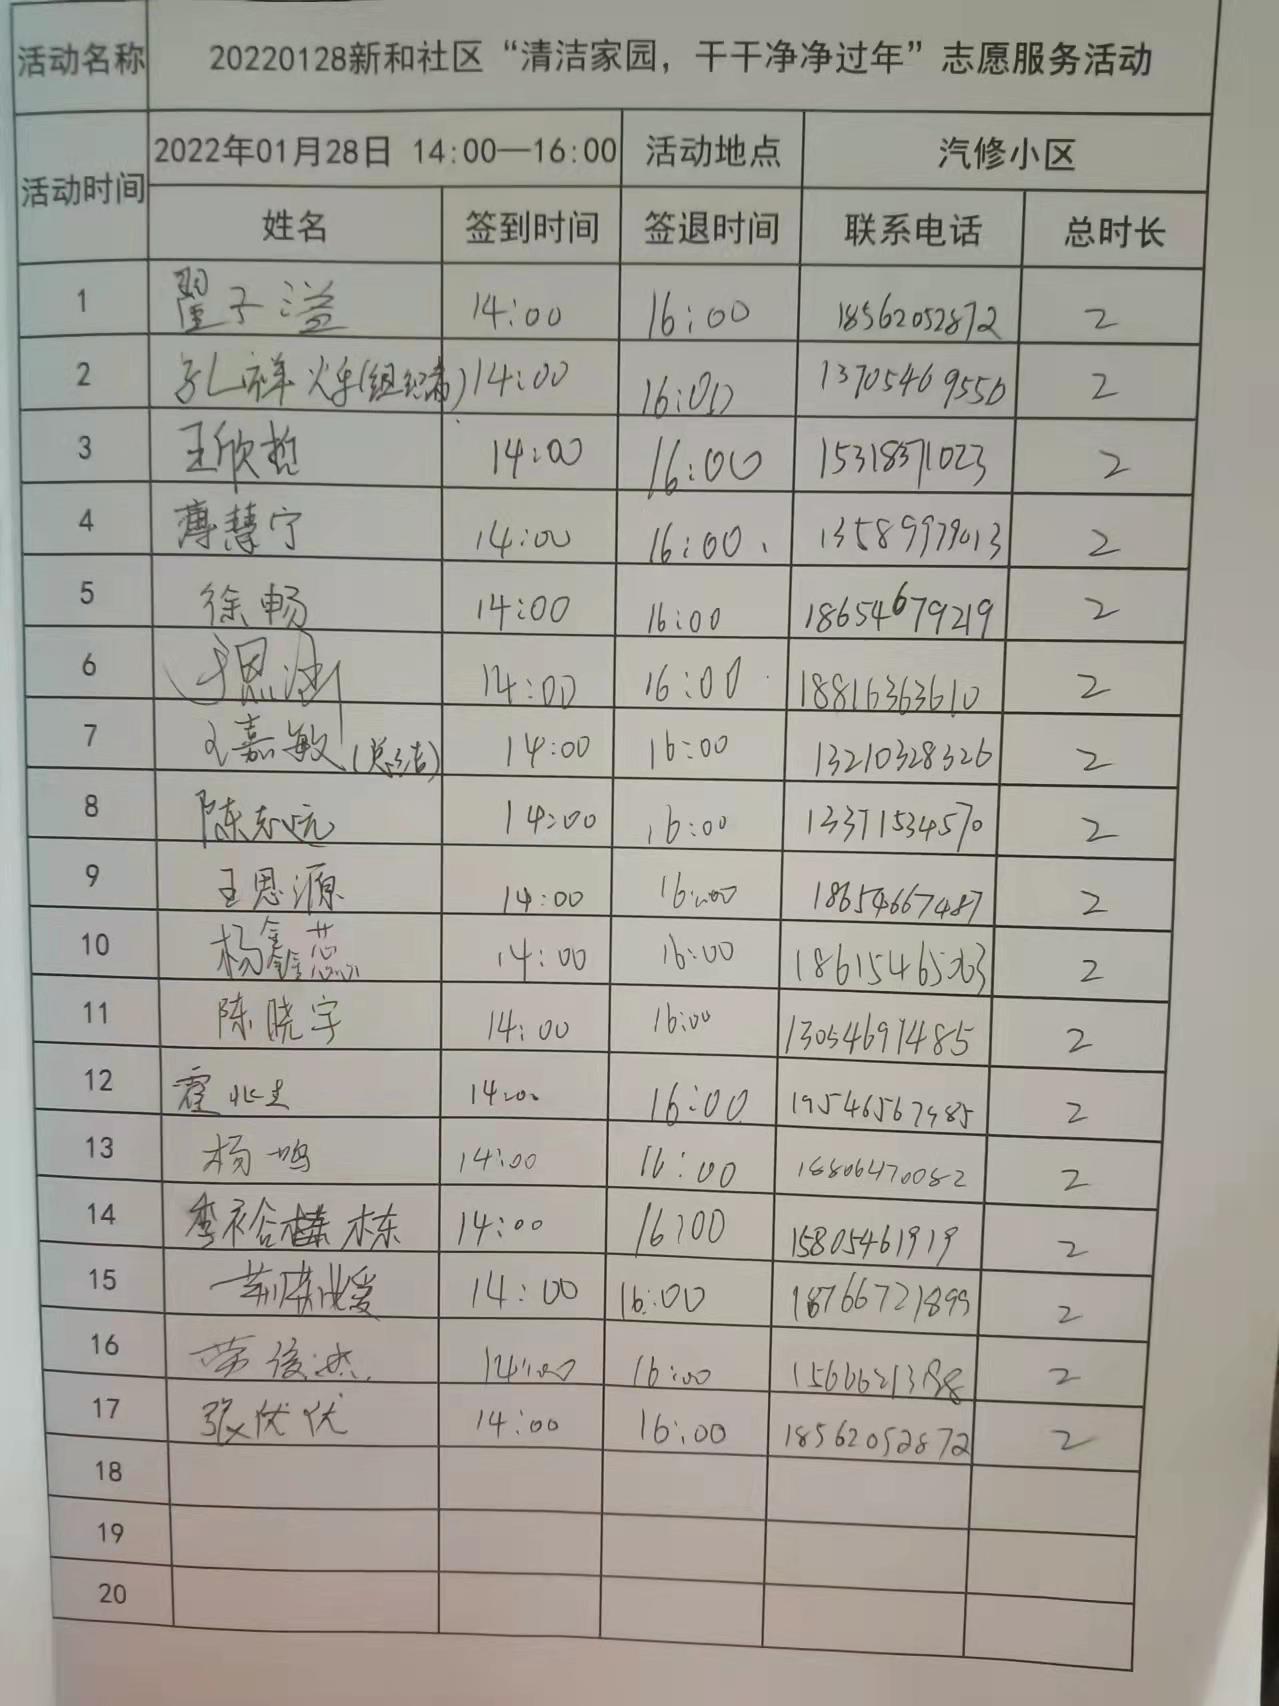 活动名称 20220128新和社区“清洁家园，干干净净过年”志愿服务活动
活动时间 2022年01月28日 14:00—16:00 活动地点 汽修小区
姓名 签到时间 签退时间 联系电话 总时长
1 翟子溢 14:00 16:00 18562052872 2
2 孔祥 (组织者) 14:00 16:00 13705469550 2
3 王欣哲 14:00 16:00 15318371023 2
4 薄慧宁 14:00 16:00 13589979013 2
5 徐畅 14:00 16:00 18654679219 2
6 于恩涵 14:00 16:00 18816363610 2
7 嘉敏(总结) 14:00 16:00 13210328326 2
8 陈志远 14:00 16:00 13371534570 2
9 王思源 14:00 16:00 18654667487 2
10 杨鑫蕊 14:00 16:00 2
11 陈晓宇 14:00 16:00 13054691485 2
12 霍兆 14:00 16:00 2
13 杨鸣 14:00 16:00 18806470082 2
14 李裕栋 14:00 16:00 15805461919 2
15 14:00 16:00 18766721899 2
16 荣俊杰 14:00 16:00 2
17 张伏伏 14:00 16:00 18562052872 2
18
19
20